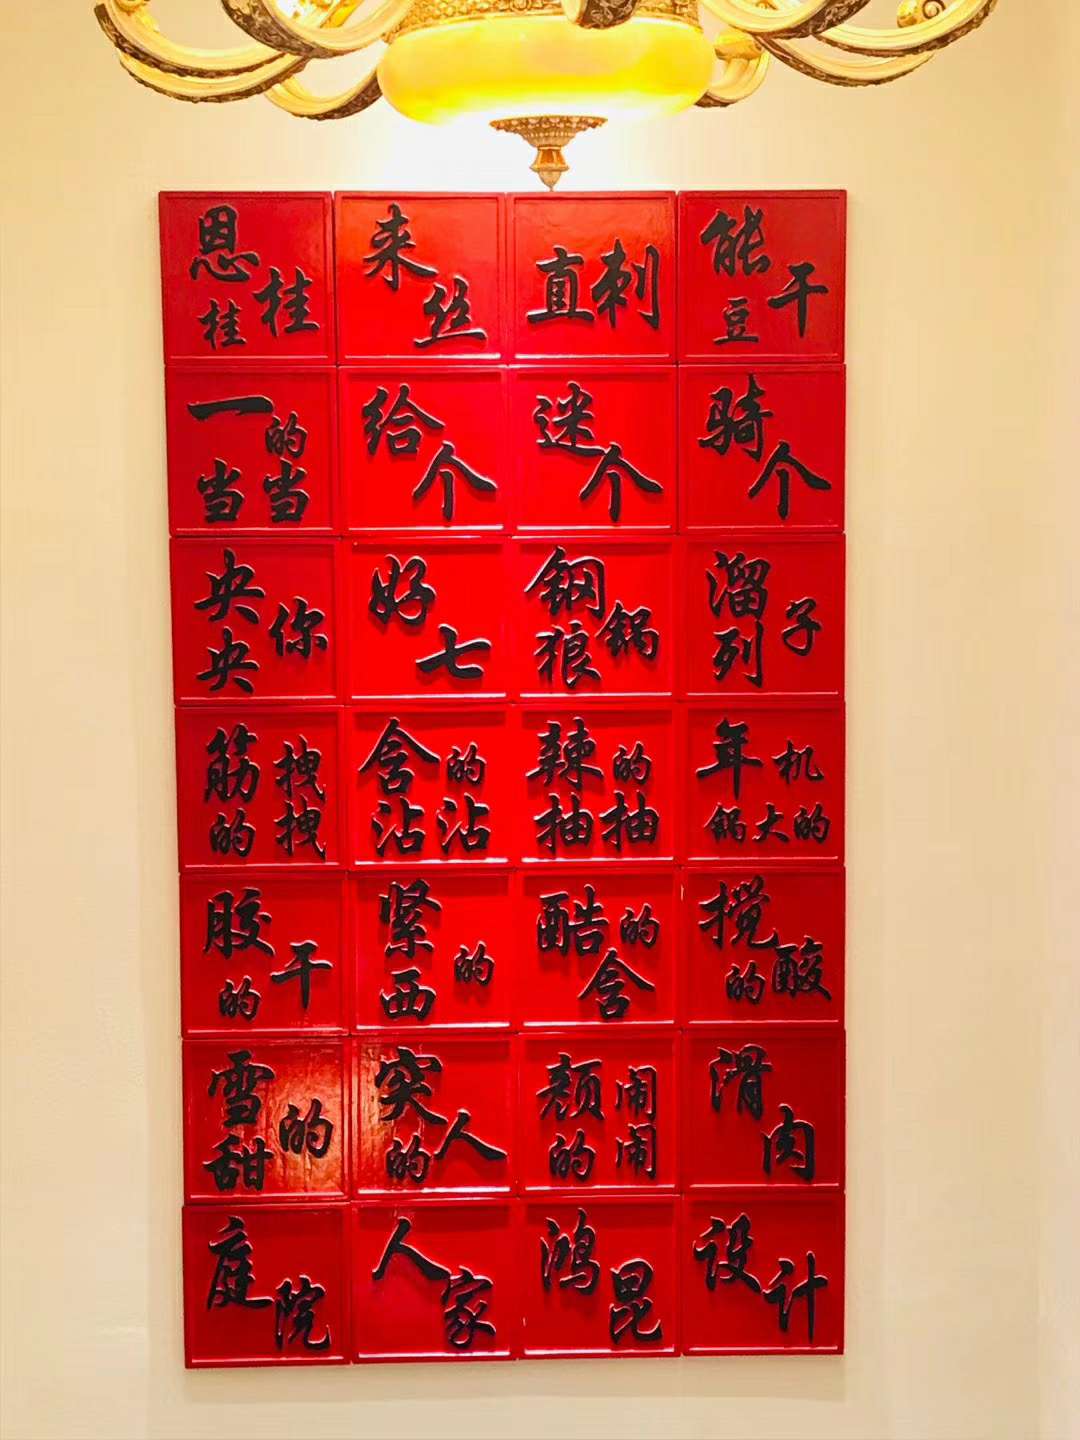 恩桂桂
来丝
直刺
能豆干
一当的当
给个
迷个
骑个
央央你
好七
钢狼锅
溜列子
筋的拽拽
含沾的沾
辣抽的抽
年机锅大的
胶的干
紧西的
酷的含
搅的酸
雪甜的
突的人
颓的闹闹
滑肉
庭院
人家
鸿昆
设计